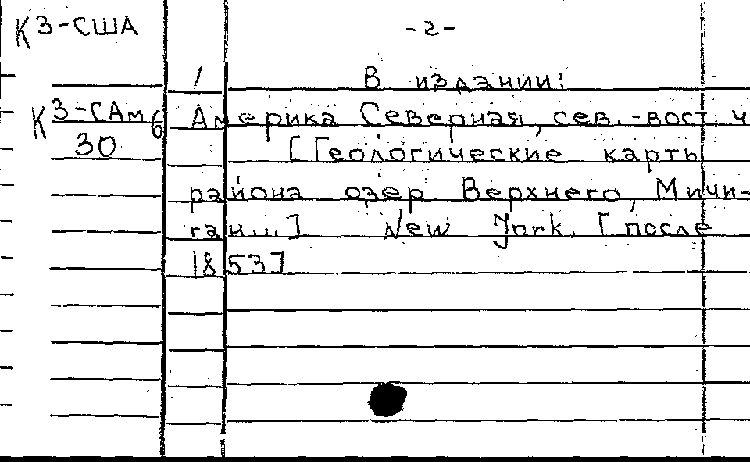 К З-США
-2-
В издании:
К З-САм 6
30
Америка Северная, сев.-вост. ч
[Геологические карты
района озер Верхнего, Мичи-
ган...] New York, [после
1853]